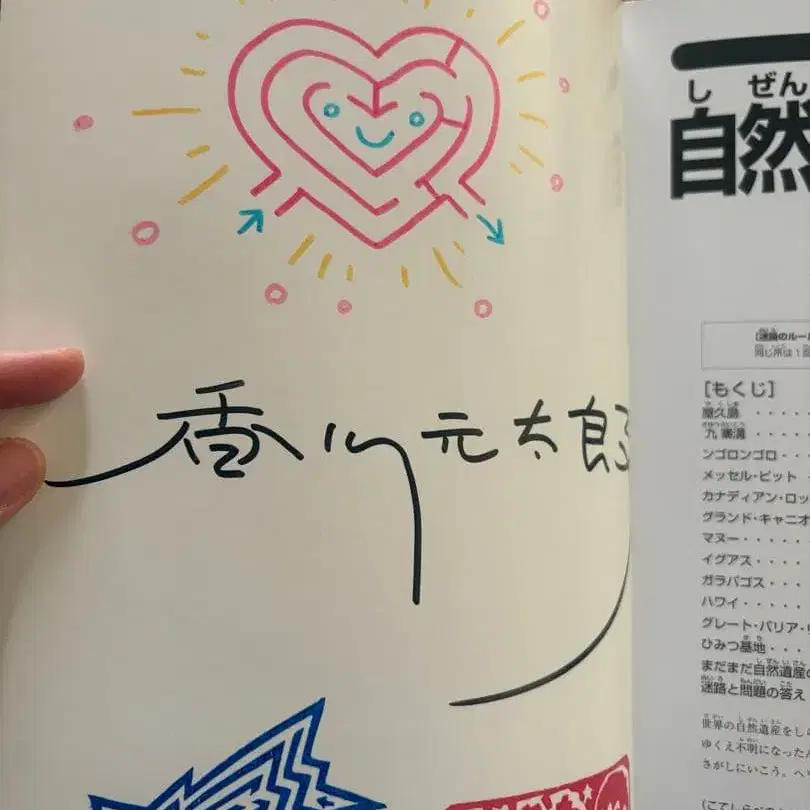 香川元太郎
しぜん
自然
[迷路のルール
同じ所は1回
[もくじ]
屋久島・・・・
九寨溝・・・・
ンゴロンゴロ・・・
メッセル・ピット・
カナディアン・ロッ
グランド・キャニオ
マヌー・・・・・・
イグアス・・・・
ガラパゴス・・・
ハワイ・・・・・
グレート・バリア・
ひみつ基地・・・
まだまだ自然遺産の
迷路と問題の答え
世界の自然遺産をし
ゆくえ不明になったん
さがしにいこう。ヘリ